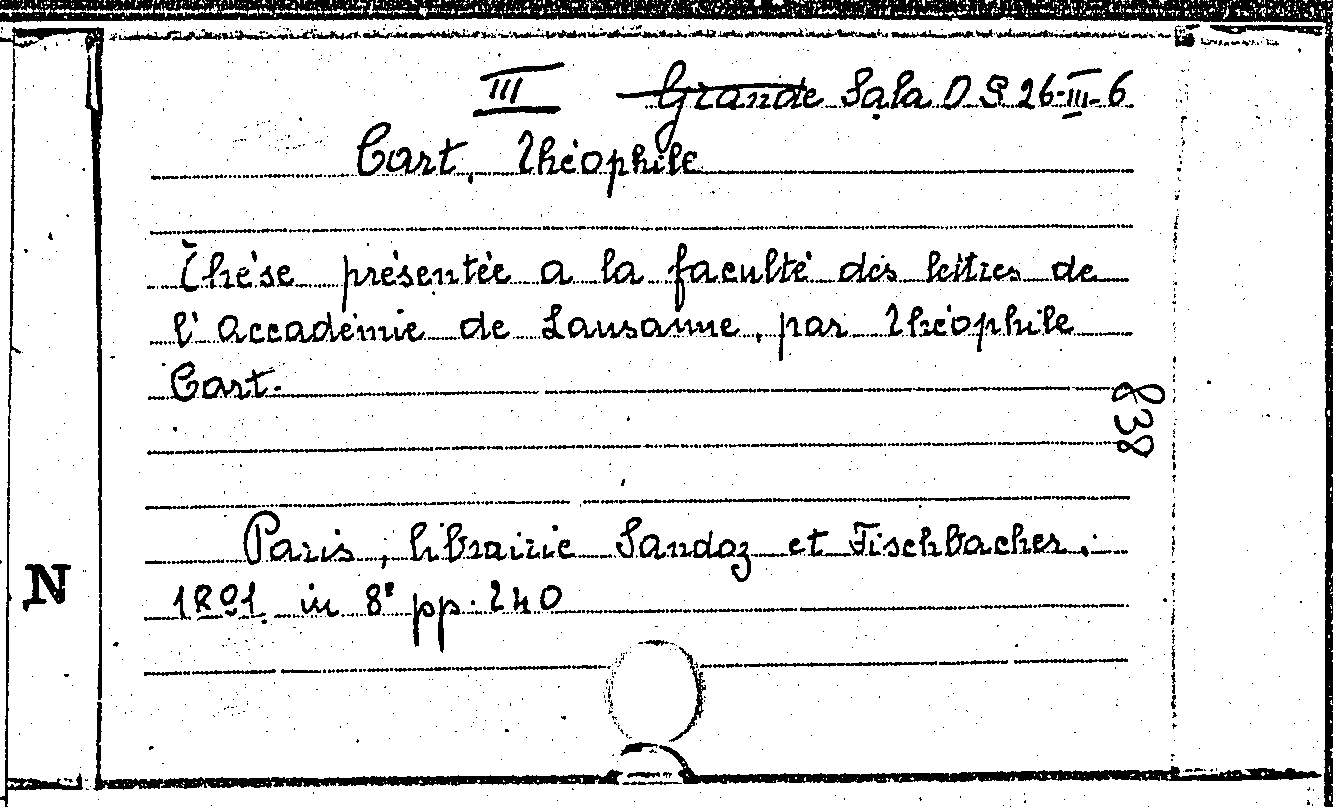 III ~~Grande~~ Sala D S 26-III-6
Cart, Théophile
Thése présentée a la faculté des lettres de
l'accadémie de Lausanne, par Théophile
Cart.
838
Paris, librairie Sandoz et Fischbacher,
1891 in 8° pp. 240
N